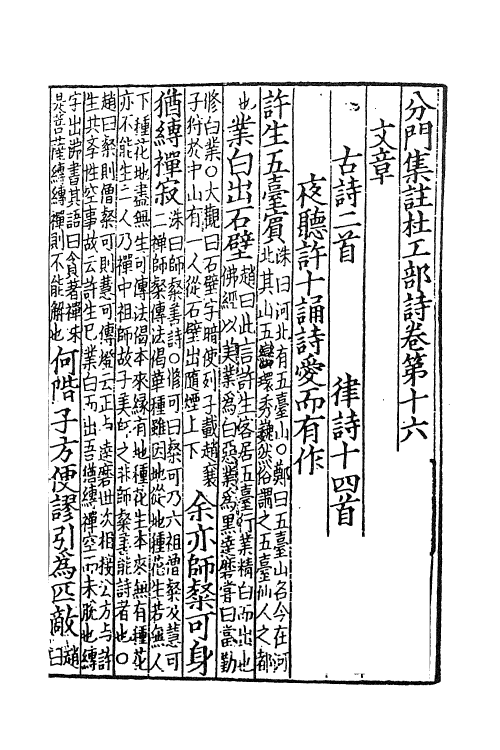 分門集註杜工部詩卷第十六
文章
古詩二首　律詩十四首
夜聽許十誦詩愛而有作
許生五臺賓洙曰河北有五臺山○鄭曰五臺山名今在河
北其山五巒環秀巍然俗謂之五臺仙人之都
也業白出石壁趙曰此言許生客居五臺行業精白而出也
佛經以美業為白惡業為黑達磨嘗曰當勤
修白業○大觀曰石壁字暗使列子載趙襄
子狩於中山有一人從石壁出隨煙上下余亦師粲可身
猶縛禪寂洙曰師粲善詩○脩可曰粲可乃六祖僧粲及慧可
二禪師粲傳法偈華種雖因地從地種花生若無人
下種花地盡無生可傳法偈本來緣有地種花生本來無有種花
亦不能生二人乃禪中祖師故子美師之非師粲善能詩者也○
趙曰粲則僧粲可則慧可傳燈云正與達磨世次相接公方與許
生共李性空事故云許生已業白而出吾猶縛禪空而未脫也縛
字出佛書其語曰貪著禪味
是菩薩縛縛禪則不能解也何階子方便謬引為匹敵趙曰